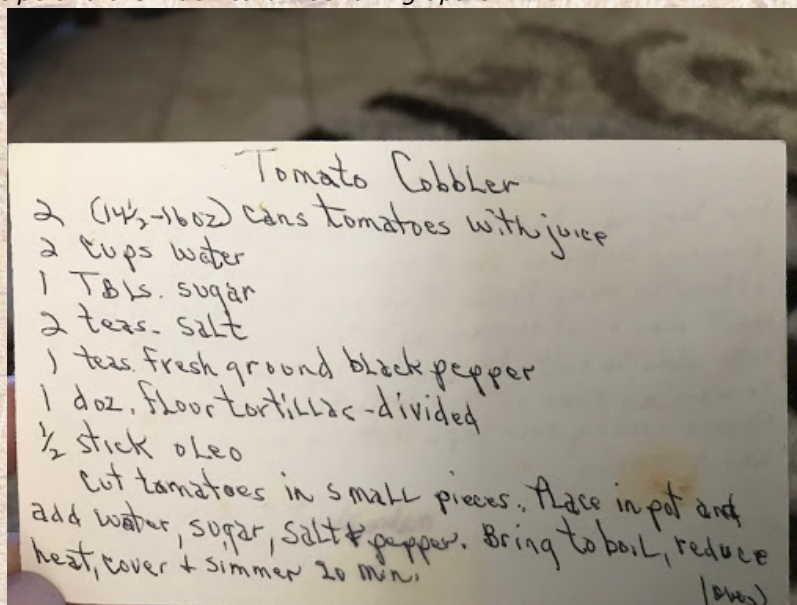 Tomato Cobbler
2 (14½-16oz) cans tomatoes with juice
2 cups water
1 TBLS. sugar
2 teas. salt
1 teas. fresh ground black pepper
1 doz. flour tortillas-divided
½ stick oleo
cut tomatoes in small pieces. Place in pot and
add water, sugar, salt & pepper. Bring to boil, reduce
heat, cover + simmer 20 min.
(over)